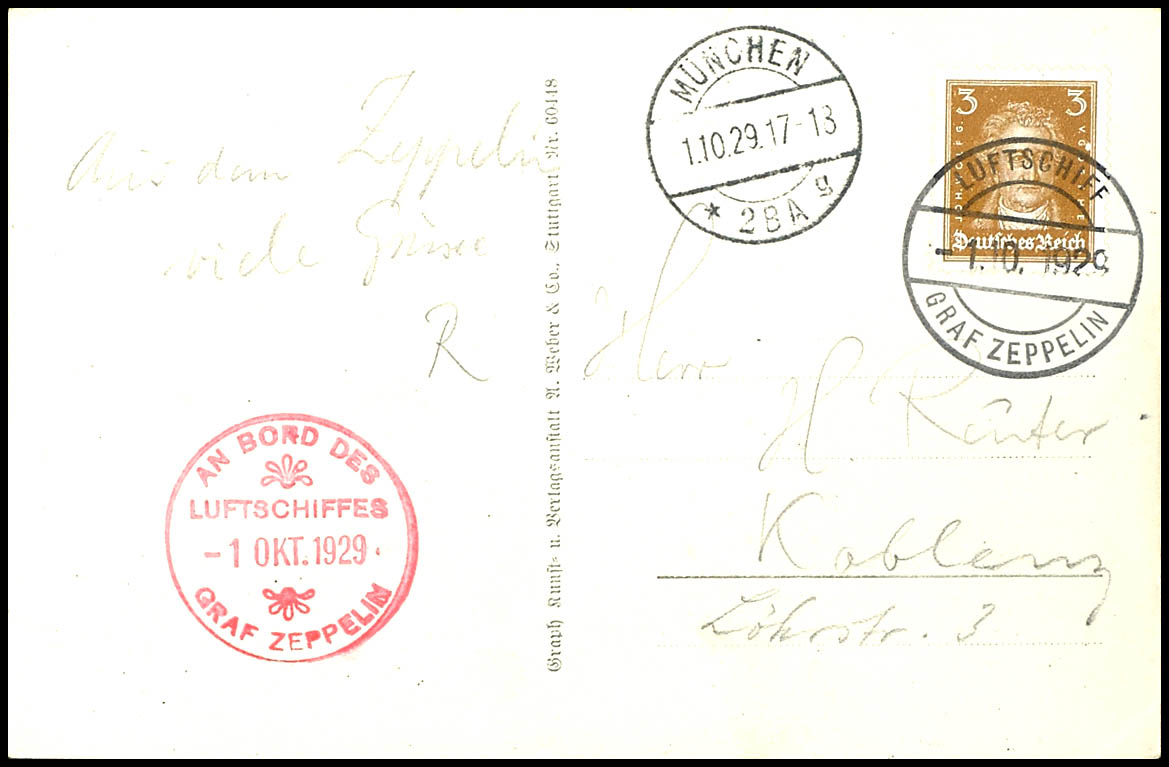 Aus dem Zeppelin
viele Grüsse
R
AN BORD DES
LUFTSCHIFFES
- 1 OKT. 1929
GRAF ZEPPELIN
Graph Kunst- u. Verlagsanstalt A. Weber & Co., Stuttgart Nr. 60448
MÜNCHEN
1.10.29.17-18
* 2BA g
3 3
JOH. WOLFG. V. GOETHE
Deutsches Reich
LUFTSCHIFF
- 1.10. 1929
GRAF ZEPPELIN
Herr
H Räuter
Koblenz
Löhrstr. 3